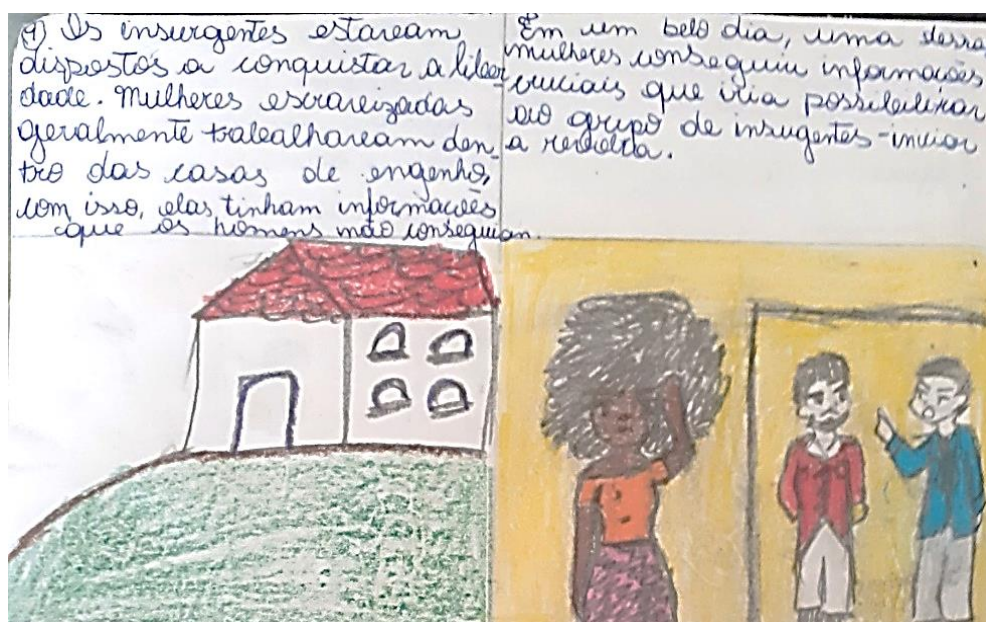 ① Os insurgentes estavam
dispostos a conquistar a liber
dade. Mulheres escravizadas
geralmente trabalhavam den-
tro das casas de engenho,
com isso, elas tinham informações
que os homens não conseguian.
Em um belo dia, uma dessas
mulheres conseguiu informações
cruciais que iria possibilitar
ao grupo de insugentes iniciar
a revolta.